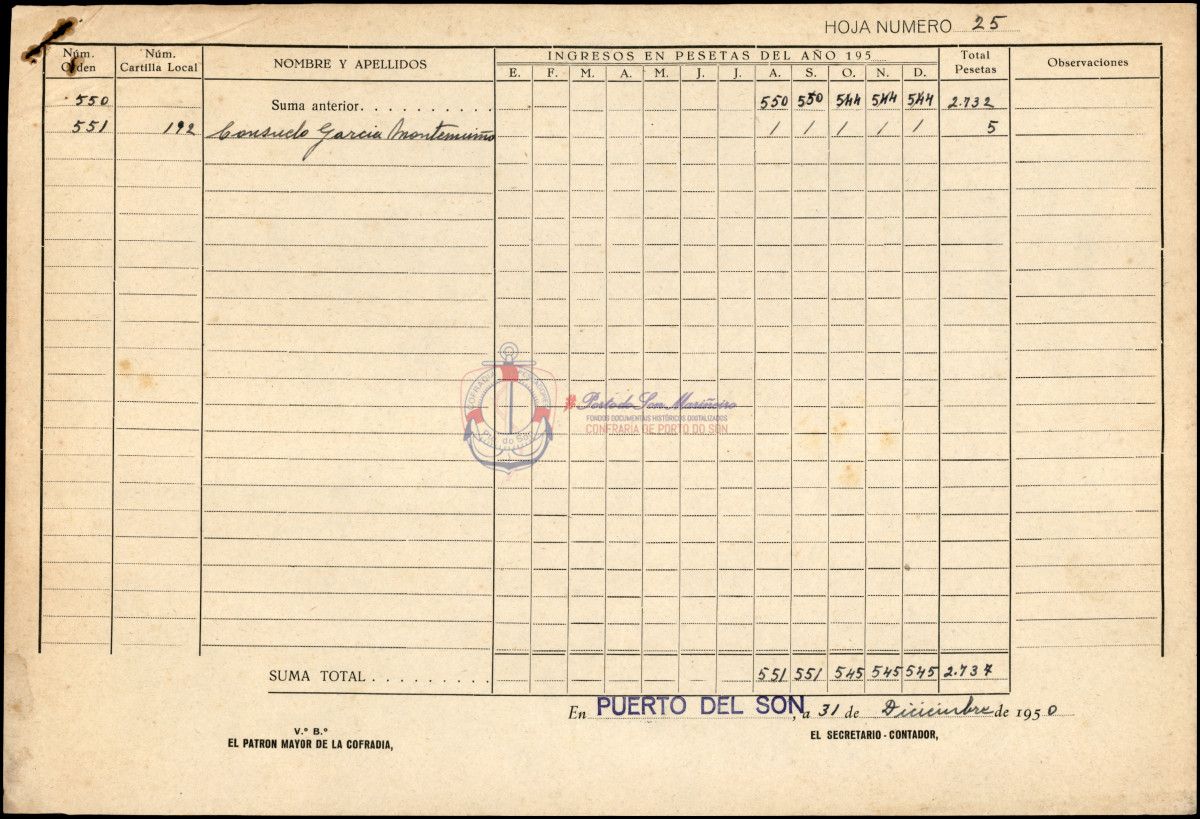 HOJA NUMERO 25
Núm. Orden Núm. Cartilla Local NOMBRE Y APELLIDOS INGRESOS EN PESETAS DEL AÑO 195 Total Pesetas Observaciones
E. F. M. A. M. J. J. A. S. O. N. D.
550 Suma anterior. . . . . . . . . . 550 550 544 544 544 2.732
551 192 Consuelo Garcia Montemuiño 1 1 1 1 1 5
COFRADIA PESCADORES
Pto. do Son
Porto do Son Mariñeiro
FONDOS DOCUMENTAIS HISTÓRICOS DIGITALIZADOS
CONFRARÍA DE PORTO DO SON
SUMA TOTAL . . . . . . . . . 551 551 545 545 545 2.737
En PUERTO DEL SON, a 31 de Diciembre de 1950
V.º B.º
EL PATRON MAYOR DE LA COFRADIA,
EL SECRETARIO - CONTADOR,